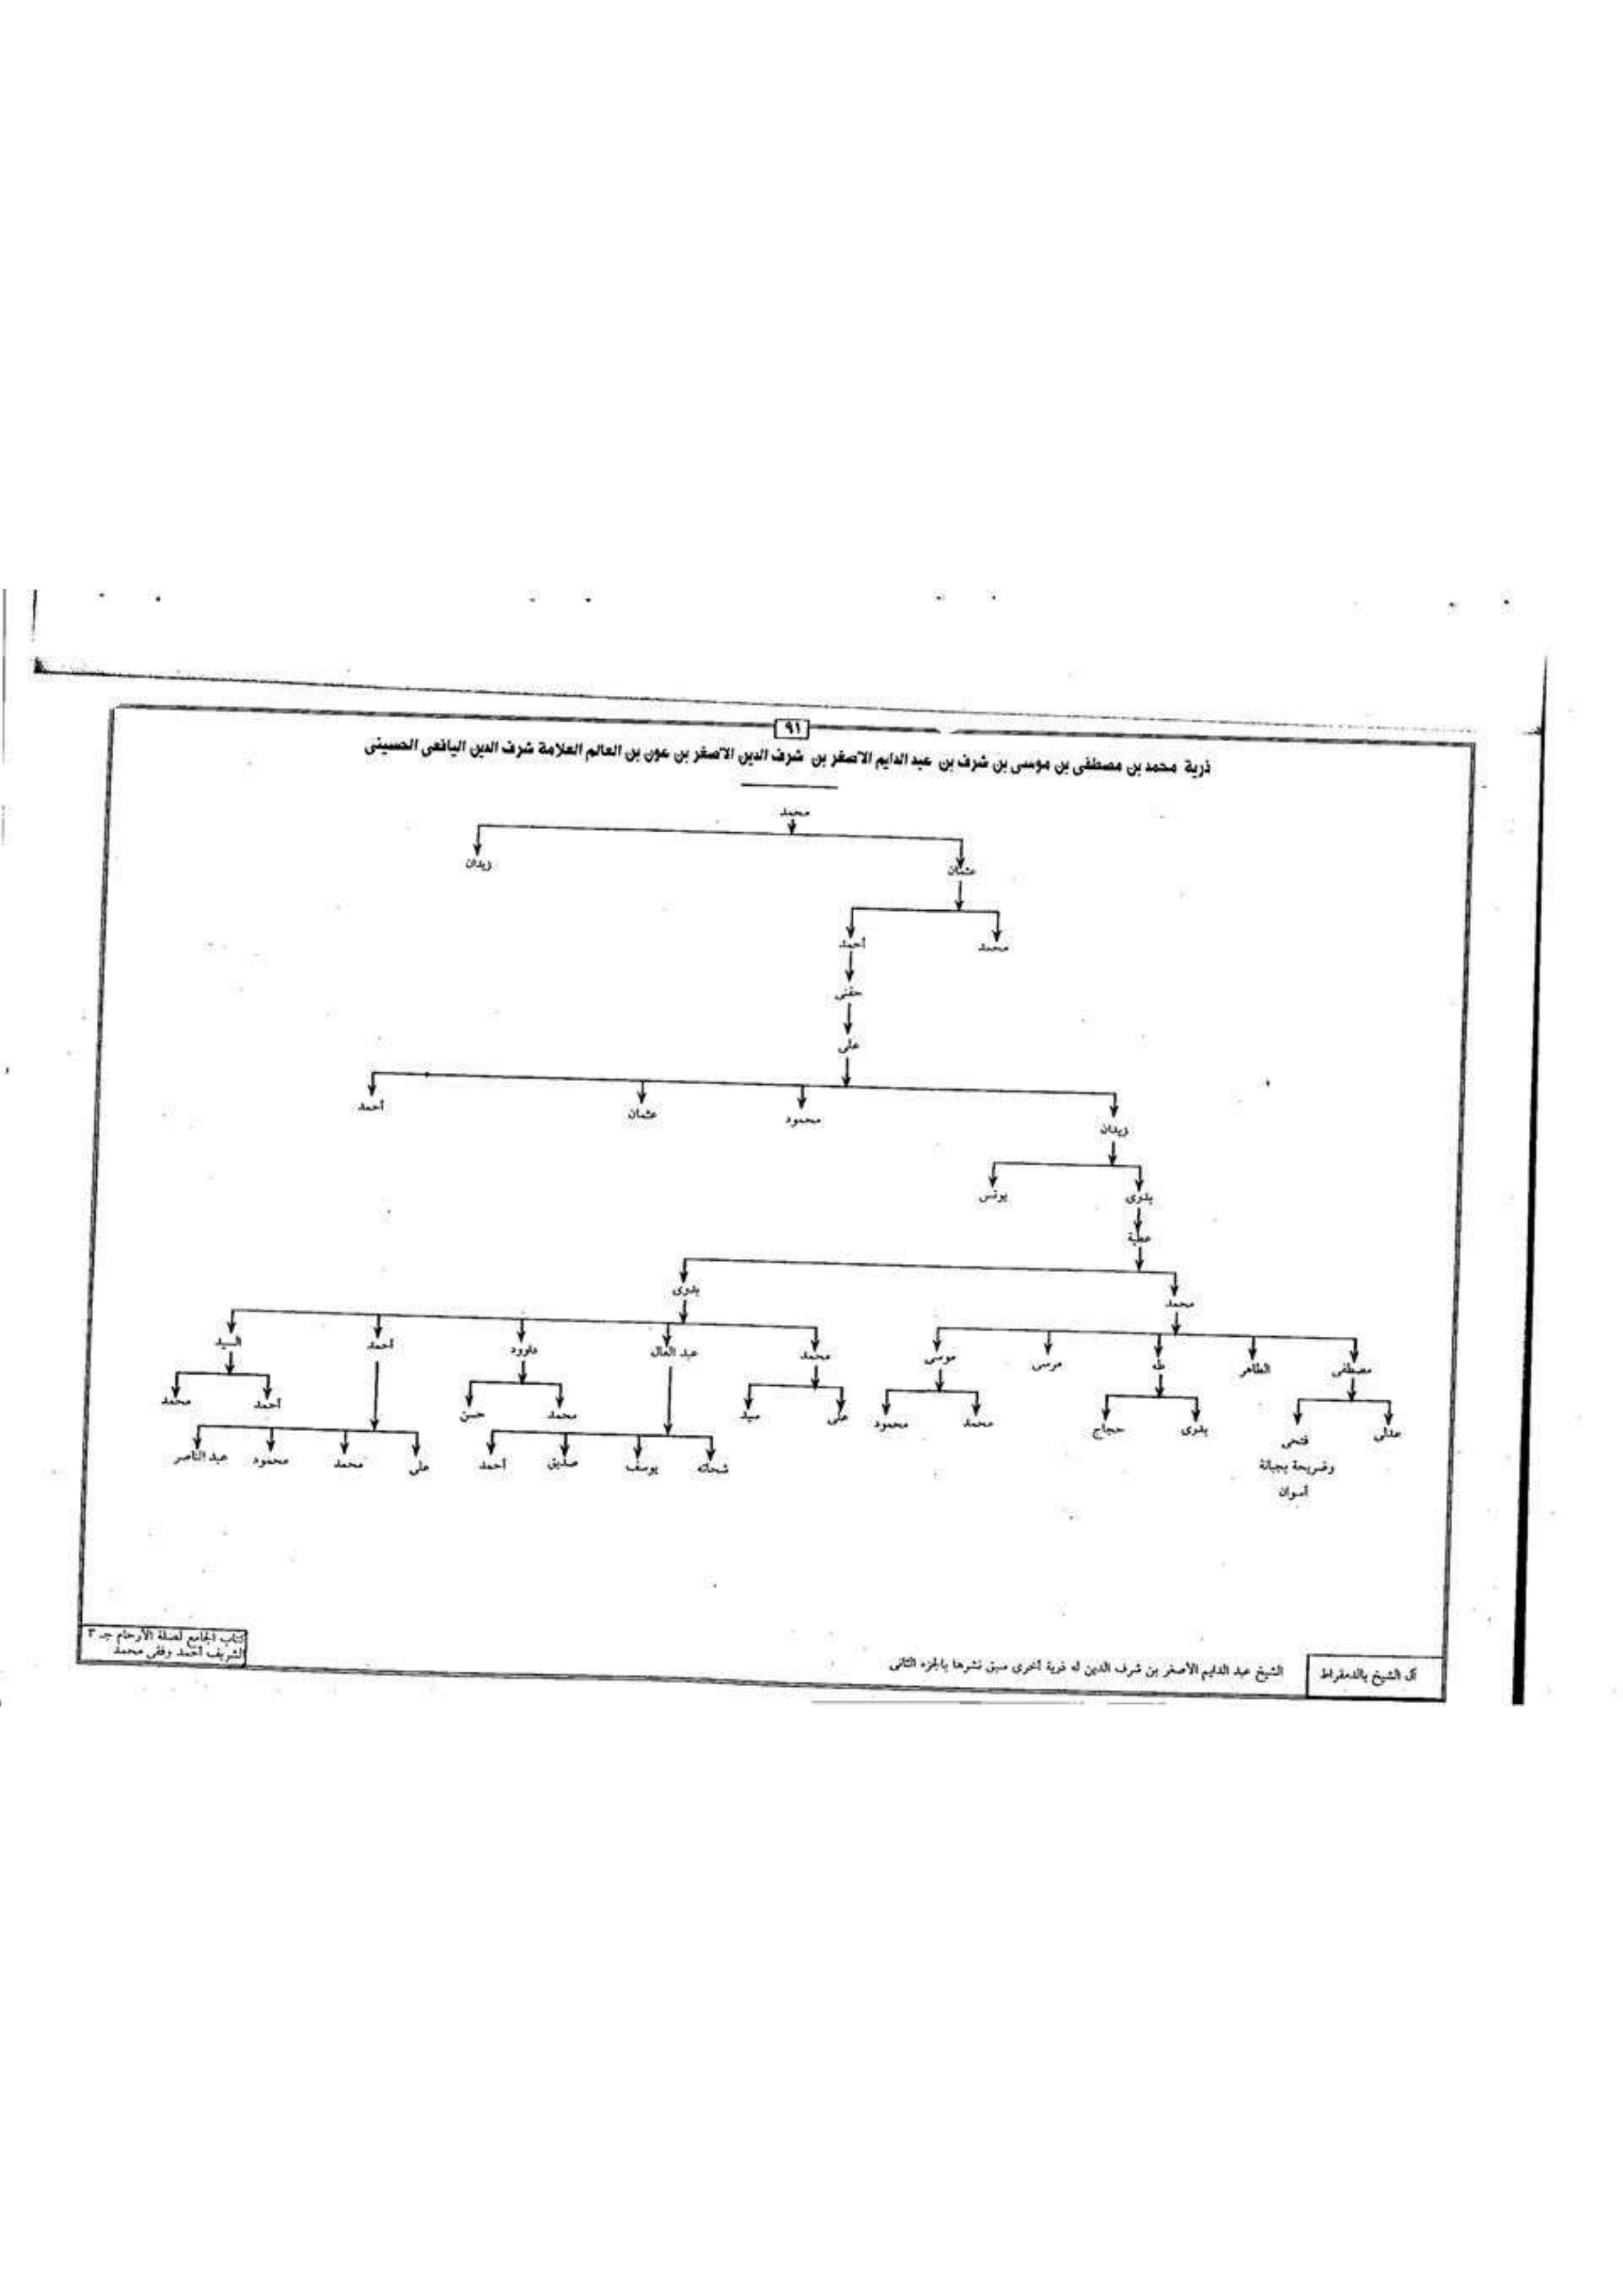 ٩١
ذرية محمد بن مصطفى بن موسى بن شرف بن عبد الدايم الاصغر بن شرف الدين الاصغر بن عون بن العالم العلامة شرف الدين اليافعى الحسينى
محمد
عثمان زيدان
محمد أحمد
حفنى
على
زيدان محمود عثمان أحمد
بدوى يونس
عطية
محمد بدوى
مصطفى الطاهر طه مرسى موسى محمد عبد العال داوود أحمد السيد
عدلى فتحى بدوى حجاج محمد محمود على سيد محمد حسن أحمد محمد
وضريحة بجبانة
أسوان
شحاته يوسف صديق أحمد على محمد محمود عبد الناصر
آل الشيخ بالدمقراط
الشيخ عبد الدايم الأصغر بن شرف الدين له ذرية أخرى سبق نشرها بالجزء الثانى
كتاب الجامع لصلة الأرحام جـ ٣
الشريف أحمد وفقى محمد